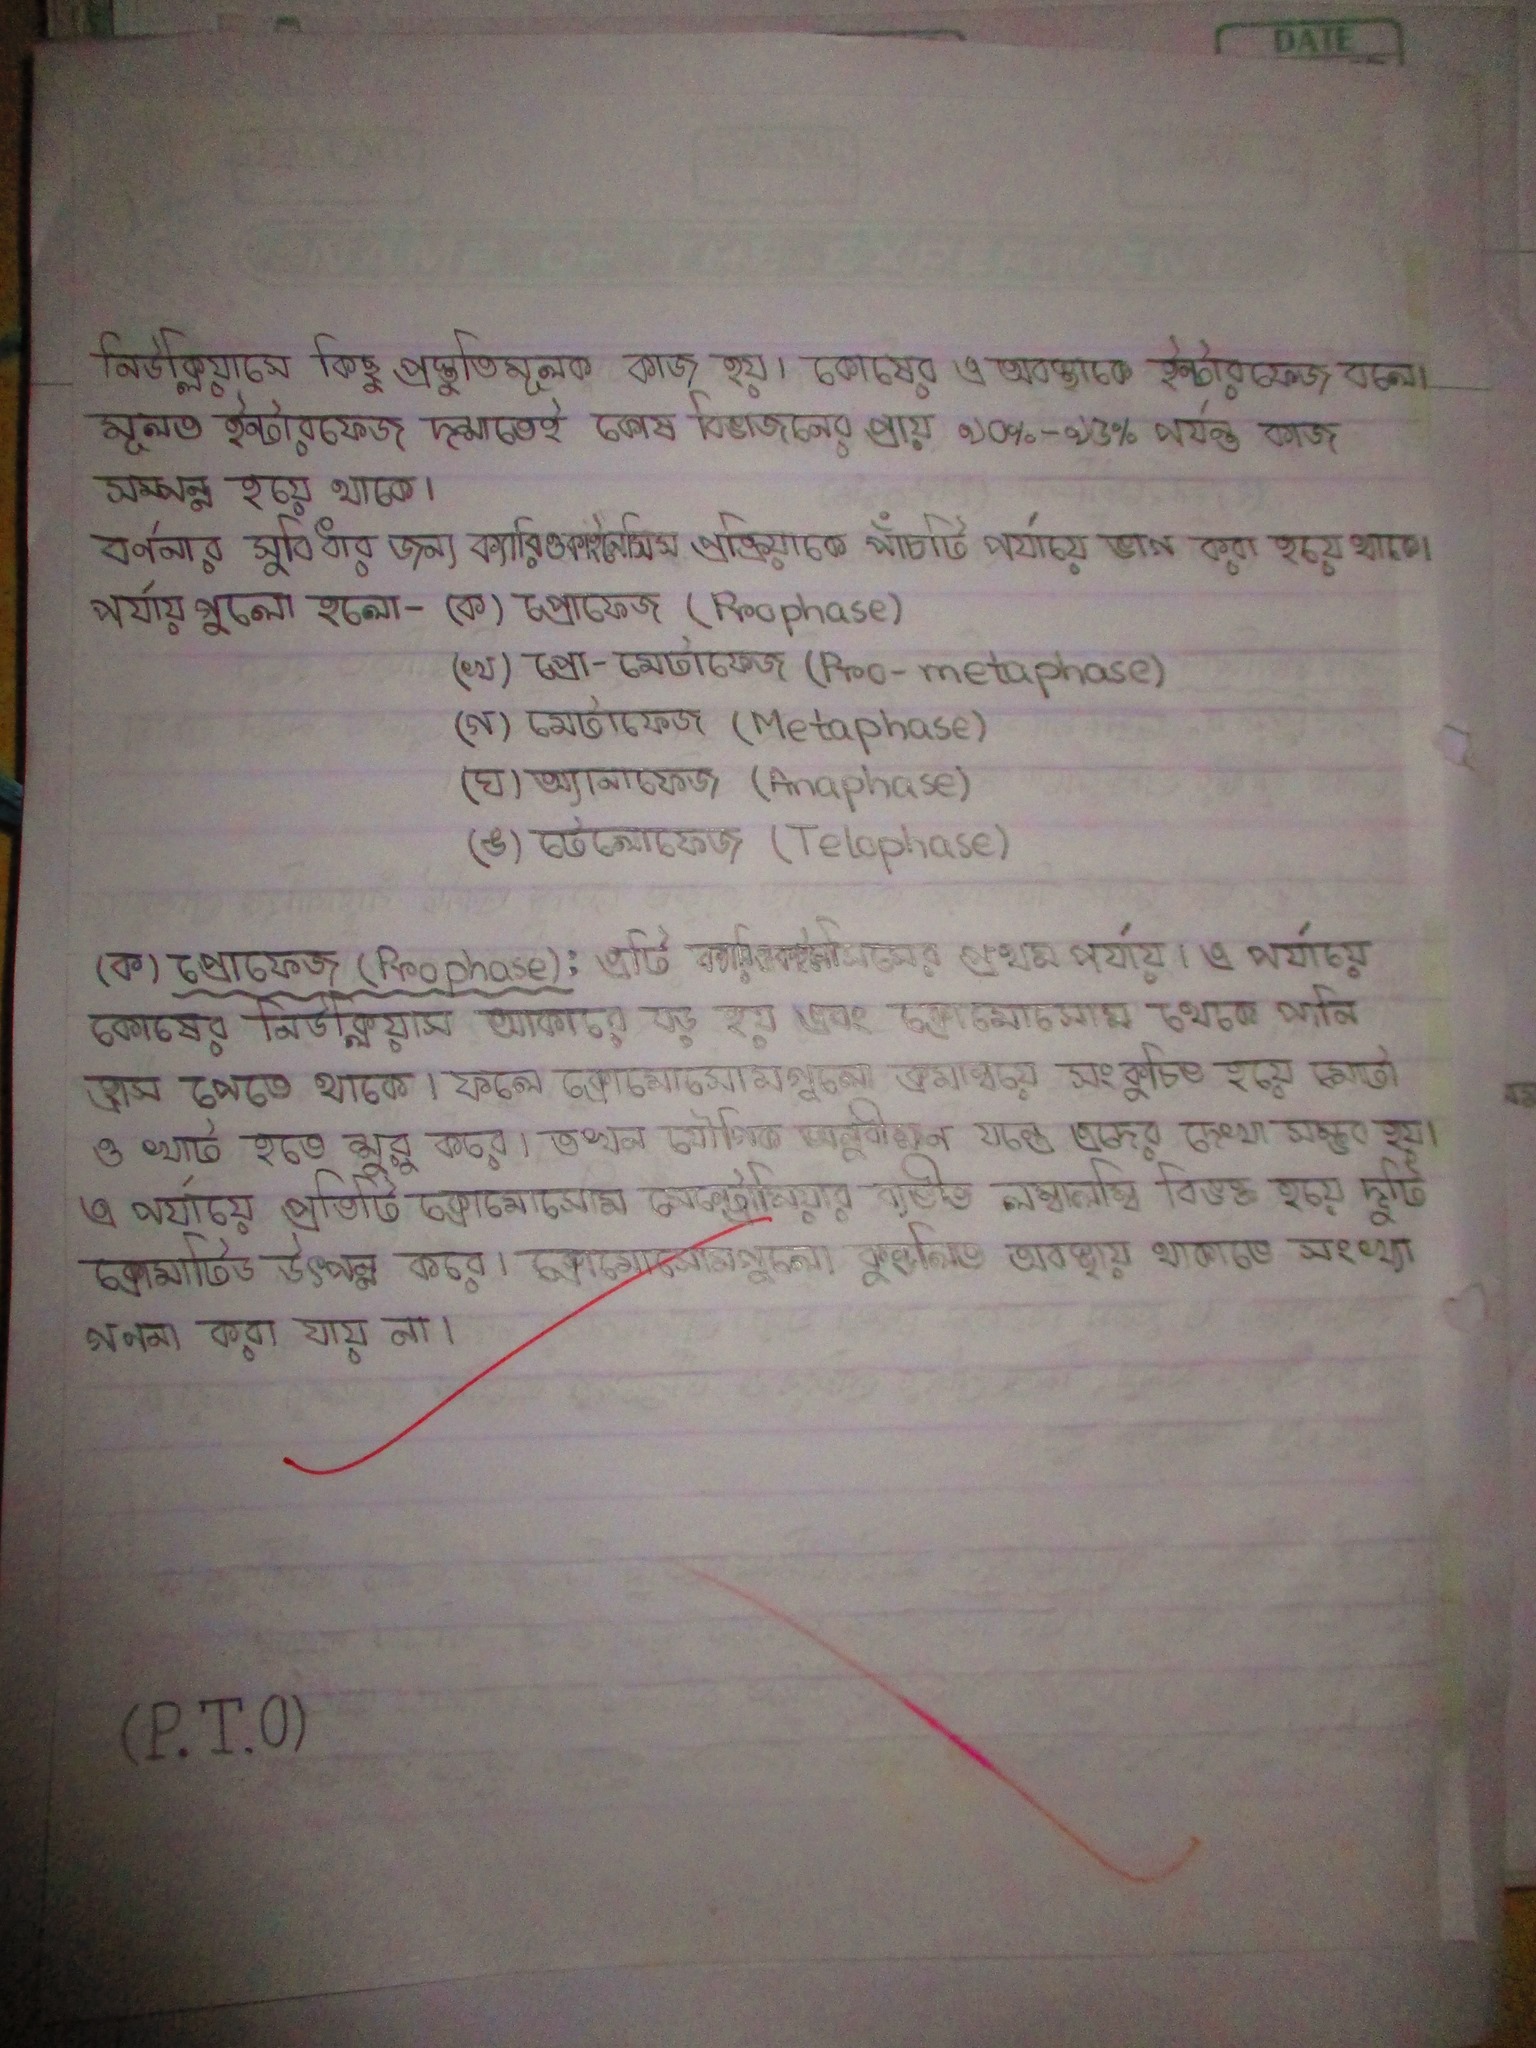 DATE
নিউক্লিয়াসে কিছু প্রস্তুতিমূলক কাজ হয়। কোষের এ অবস্থাকে ইন্টারফেজ বলে।
মূলত ইন্টারফেজ দশাতেই কোষ বিভাজনের প্রায় ৯০%-৯৫% পর্যন্ত কাজ
সম্পন্ন হয়ে থাকে।
বর্ণনার সুবিধার জন্য ক্যারিওকাইনেসিস প্রক্রিয়াকে পাঁচটি পর্যায়ে ভাগ করা হয়ে থাকে।
পর্যায়গুলো হলো- (ক) প্রোফেজ (Prophase)
(খ) প্রো-মেটাফেজ (Pro-metaphase)
(গ) মেটাফেজ (Metaphase)
(ঘ) অ্যানাফেজ (Anaphase)
(ঙ) টেলোফেজ (Telophase)
(ক) প্রোফেজ (Prophase): এটি ক্যারিওকাইনেসিসের প্রথম পর্যায়। এ পর্যায়ে
কোষের নিউক্লিয়াস আকারে বড় হয় এবং ক্রোমোসোম থেকে পানি
হ্রাস পেতে থাকে। ফলে ক্রোমোসোমগুলো ক্রমান্বয়ে সংকুচিত হয়ে মোটা
ও খাট হতে শুরু করে। তখন যৌগিক অনুবীক্ষন যন্ত্রে এদের দেখা সম্ভব হয়।
এ পর্যায়ে প্রতিটি ক্রোমোসোম সেন্ট্রোমিয়ার ব্যতীত লম্বালম্বি বিভক্ত হয়ে দুটি
ক্রোমাটিড উৎপন্ন করে। ক্রোমোসোমগুলো কুণ্ডলিত অবস্থায় থাকাতে সংখ্যা
গণনা করা যায় না।
(P.T.O)